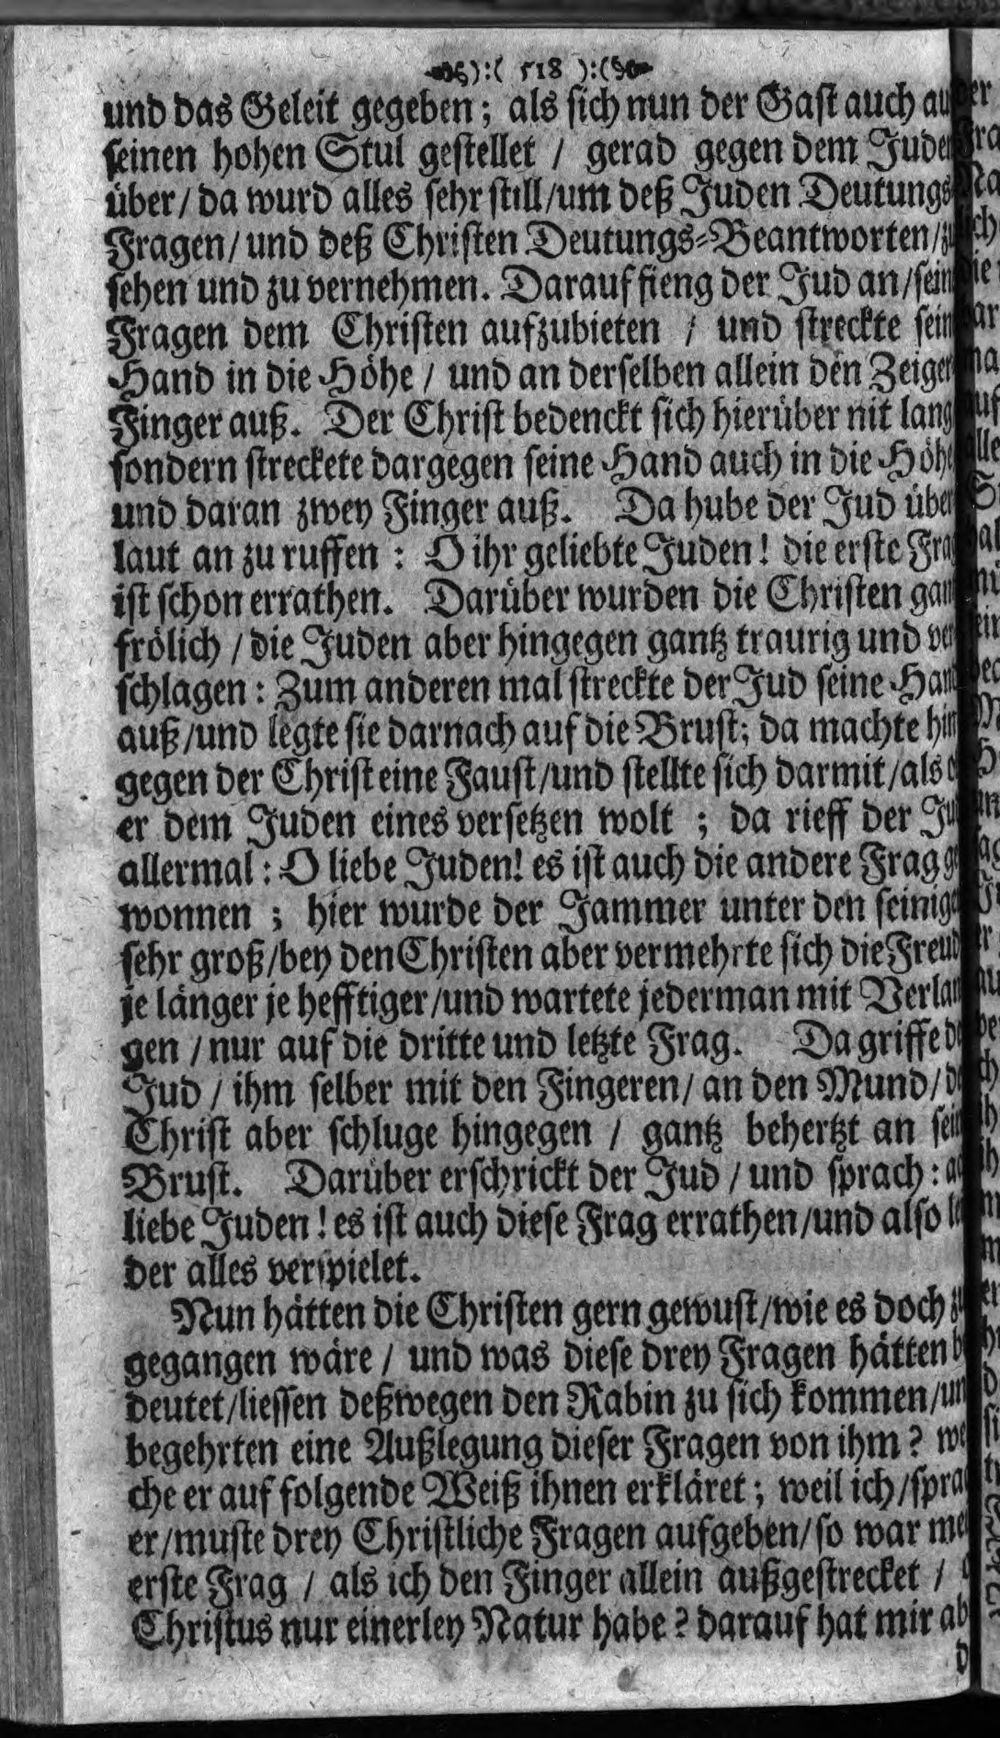 ):( 518 ):(
und das Geleit gegeben; als sich nun der Gast auch au
seinen hohen Stul gestellet / gerad gegen dem Juden
über / da wurd alles sehr still / um deß Juden Deutungs-
Fragen / und deß Christen Deutungs-Beantworten / zu
sehen und zu vernehmen. Darauf fieng der Jud an / sein
Fragen dem Christen aufzubieten / und streckte sein
Hand in die Höhe / und an derselben allein den Zeiger
Finger auß. Der Christ bedenckt sich hierüber nit lang
sondern streckete dargegen seine Hand auch in die Höhe
und daran zwey Finger auß. Da hube der Jud über
laut an zu ruffen: O ihr geliebte Juden! die erste Frag
ist schon errathen. Darüber wurden die Christen gan
frölich / die Juden aber hingegen gantz traurig und ver
schlagen: Zum anderen mal streckte der Jud seine Hand
auß / und legte sie darnach auf die Brust; da machte hin
gegen der Christ eine Faust / und stellte sich darmit / als o
er dem Juden eines versetzen wolt; da rieff der Ju
allermal: O liebe Juden! es ist auch die andere Frag ge
wonnen; hier wurde der Jammer unter den seinige
sehr groß / bey den Christen aber vermehrte sich die Freud
je länger je hefftiger / und wartete jederman mit Verlan
gen / nur auf die dritte und letzte Frag. Da griffe de
Jud / ihm selber mit den Fingeren / an den Mund / de
Christ aber schluge hingegen / gantz behertzt an sein
Brust. Darüber erschrickt der Jud / und sprach: ac
liebe Juden! es ist auch diese Frag errathen / und also lei
der alles verspielet.
Nun hätten die Christen gern gewust / wie es doch zu
gegangen wäre / und was diese drey Fragen hätten b
deutet / liessen deßwegen den Rabin zu sich kommen / un
begehrten eine Außlegung dieser Fragen von ihm? we
che er auf folgende Weiß ihnen erkläret; weil ich / sprac
er / muste drey Christliche Fragen aufgeben / so war mei
erste Frag / als ich den Finger allein außgestrecket /
Christus nur einerley Natur habe? darauf hat mir ab
d